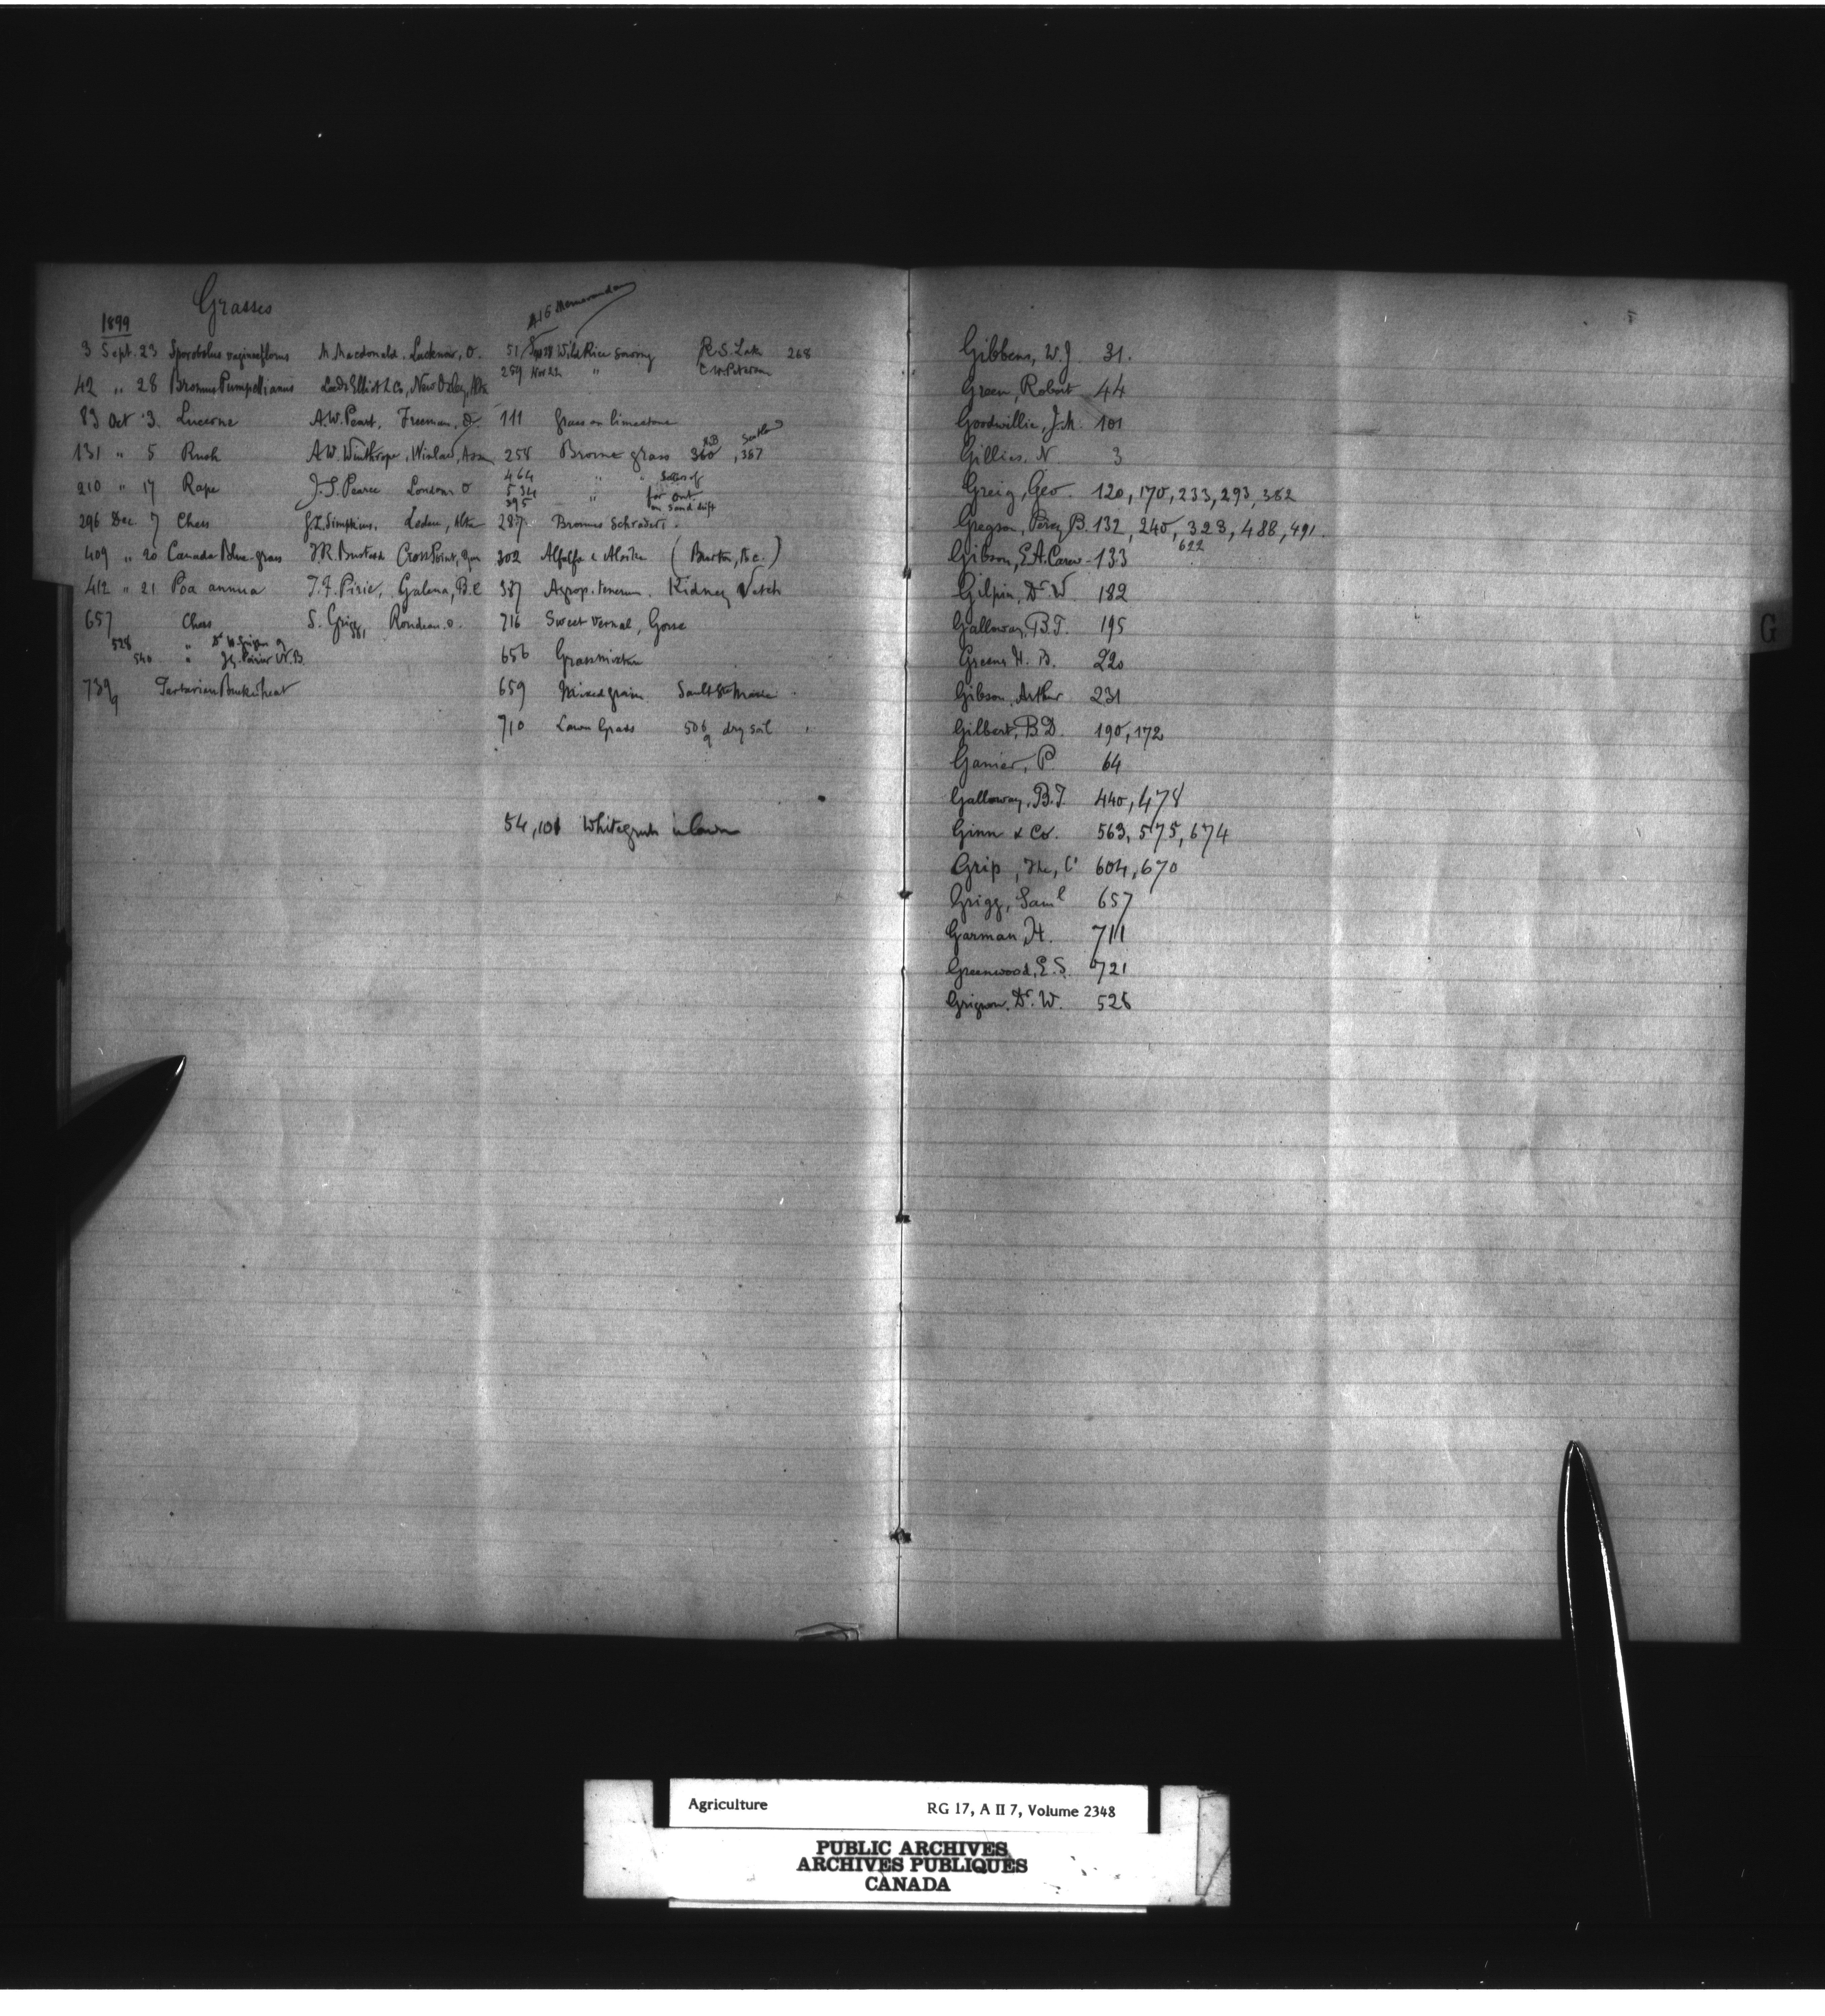 Grasses
1899
3 Sept. 23 Sporobolus vaginaeflorus M. Macdonald. Lucknow, O.
42 " 28 Bromus Pumpellianus New Oxley, Alta
83 Oct 3. Lucerne A.W. Peart, Freeman, O.
131 " 5 Rush A.W. Winthrope,
210 " 17 Rape J.S. Pearce London O
296 Dec 7 Chess J.L. Simpkins, Leduc, Alta
409 " 20 Canada Blue-grass J.R. Busteed Cross Point, Que
412 " 21 Poa annua T.F. Pirie, Galena, B.C
657 Chess S. Grigg Rondeau. O.
381
528 " Dr W. Grignon q
540 " Poirier N.B.
739 q Tartarian Buckwheat
Memoranda
51 Wild Rice sowing R.S. Lake 268
259 Nov 22 " C.W. Peterson
111 Grass on limestone
258 Brome grass 360, 367
464 " " Sales of
534 " for Ont.
395 on sand drift
287. Bromus Schraderi.
302 Alfalfa & Alsike (Burton, B.C.)
387 Agrop. tenerum. Kidney Vetch
716 Sweet vernal, Gorse
656 Grass mixture
659 Mixed grain Sault Ste Marie
710 Lawn Grass 506 q dry soil
54, 101 Whitegrub in lawn
Gibbens, W.J 31.
Green, Robert 44
Goodwillie, J.M. 101
Gillies. N. 3
Greig, Geo. 120, 170, 233, 293, 382
Gregson, Percy B. 132, 240, 323, 488, 491.
622
Gibson, E.A. Carew- 133
Gilpin, Dr W. 182
Galloway, B.T. 195
Greene H. B. 220
Gibson, Arthur 231
Gilbert, B.D. 190, 172
Ganier, P. 64
Galloway, B.T. 440, 478
Ginn & Co. 563, 575, 674
Grip, The, Co 604, 670
Grigg, Saml 657
Garman, H. 711
Greenwood, E.S. 721
Grignon. Dr. W. 528
G
Agriculture RG 17, A II 7, Volume 2348
PUBLIC ARCHIVES
ARCHIVES PUBLIQUES
CANADA